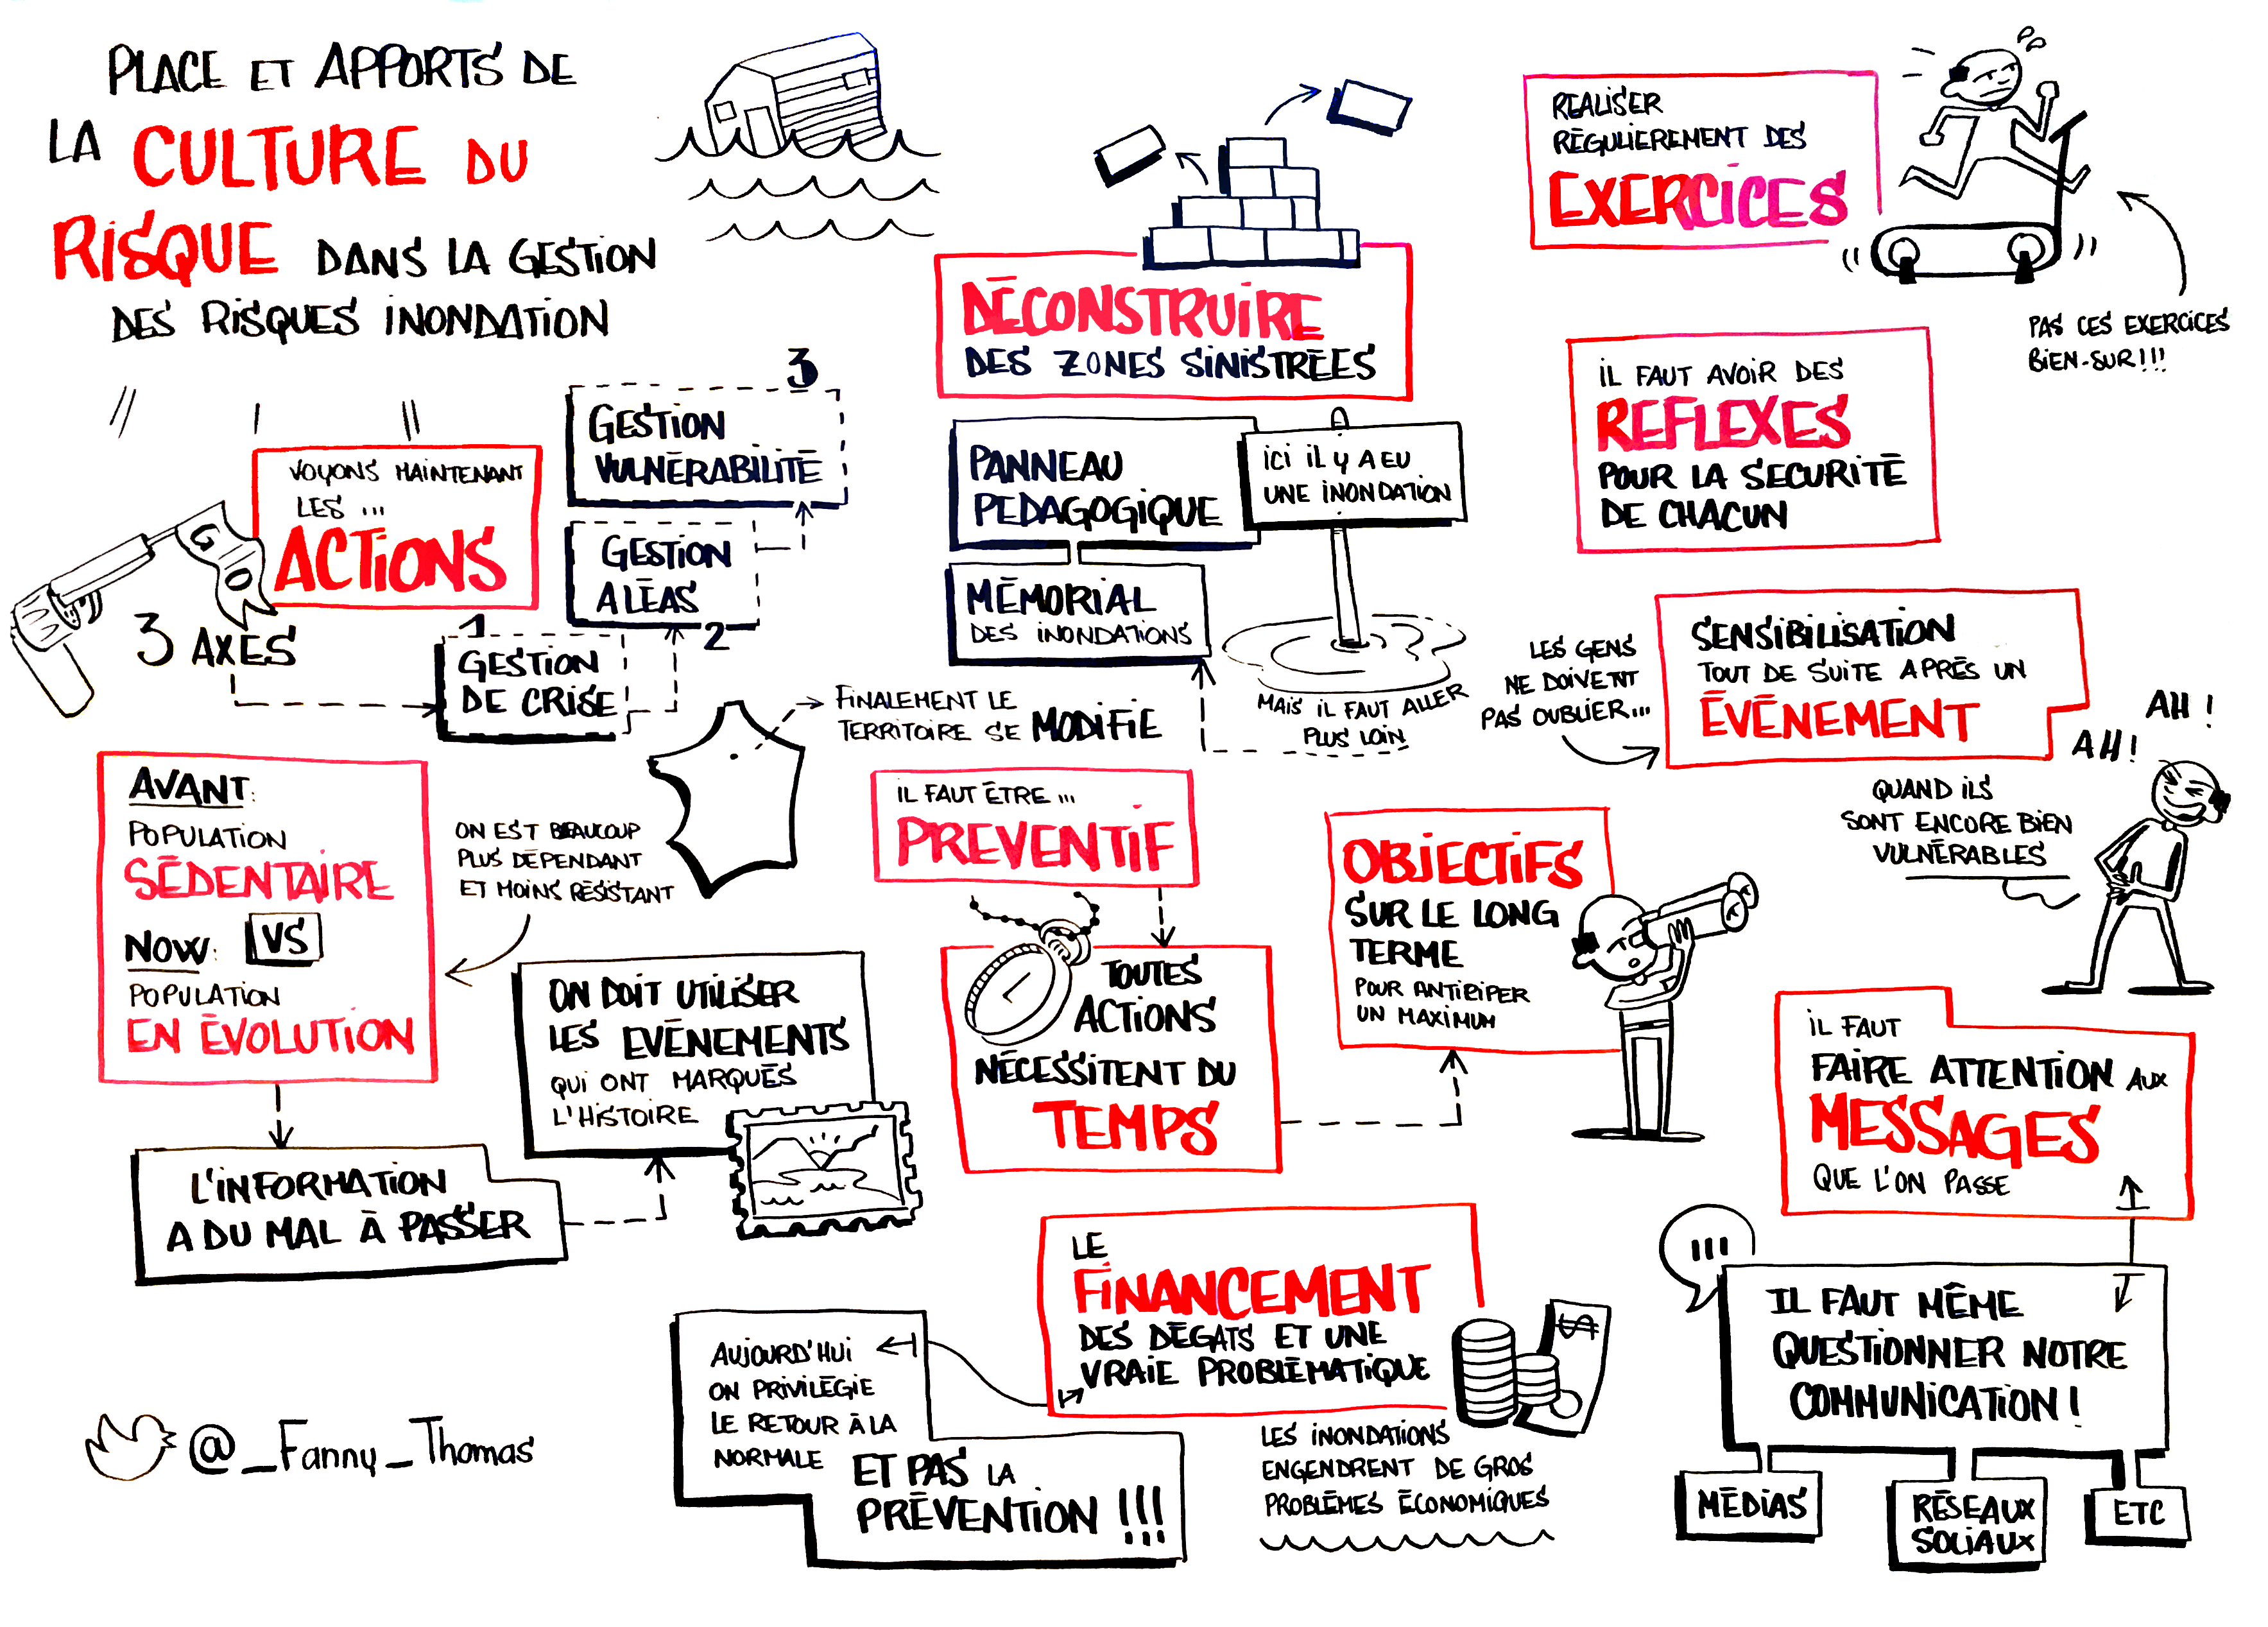 PLACE ET APPORTS DE
LA CULTURE DU
RISQUE DANS LA GESTION
DES RISQUES INONDATION
VOYONS MAINTENANT
LES ...
ACTIONS
GO
3 AXES
1
GESTION
DE CRISE
GESTION
ALÉAS
2
3
GESTION
VULNÉRABILITÉ
DÉCONSTRUIRE
DES ZONES SINISTRÉES
PANNEAU
PEDAGOGIQUE
ICI IL Y A EU
UNE INONDATION
MÉMORIAL
DES INONDATIONS
MAIS IL FAUT ALLER
PLUS LOIN
FINALEMENT LE
TERRITOIRE SE MODIFIE
REALISER
RÉGULIEREMENT DES
EXERCICES
PAS CES EXERCICES
BIEN-SUR!!!
IL FAUT AVOIR DES
REFLEXES
POUR LA SECURITÉ
DE CHACUN
LES GENS
NE DOIVENT
PAS OUBLIER...
SENSIBILISATION
TOUT DE SUITE APRÉS UN
ÉVÉNEMENT
AH !
AH !
QUAND ILS
SONT ENCORE BIEN
VULNÉRABLES
AVANT:
POPULATION
SÉDENTAIRE
VS
NOW:
POPULATION
EN ÉVOLUTION
ON EST BEAUCOUP
PLUS DÉPENDANT
ET MOINS RÉSISTANT
L'INFORMATION
A DU MAL À PASSER
ON DOIT UTILISER
LES EVÉNEMENTS
QUI ONT MARQUÉS
L'HISTOIRE
IL FAUT ÊTRE ...
PREVENTIF
TOUTES
ACTIONS
NÉCESSITENT DU
TEMPS
OBJECTIFS
SUR LE LONG
TERME
POUR ANTICIPER
UN MAXIMUM
IL FAUT
FAIRE ATTENTION AUX
MESSAGES
QUE L'ON PASSE
IL FAUT MÊME
QUESTIONNER NOTRE
COMMUNICATION !
MÉDIAS
RÉSEAUX
SOCIAUX
ETC
LE
FINANCEMENT
DES DÉGATS ET UNE
VRAIE PROBLÉMATIQUE
$
LES INONDATIONS
ENGENDRENT DE GROS
PROBLÈMES ÉCONOMIQUES
AUJOURD'HUI
ON PRIVILÉGIE
LE RETOUR À LA
NORMALE
ET PAS LA
PRÉVENTION !!!
@_Fanny_Thomas